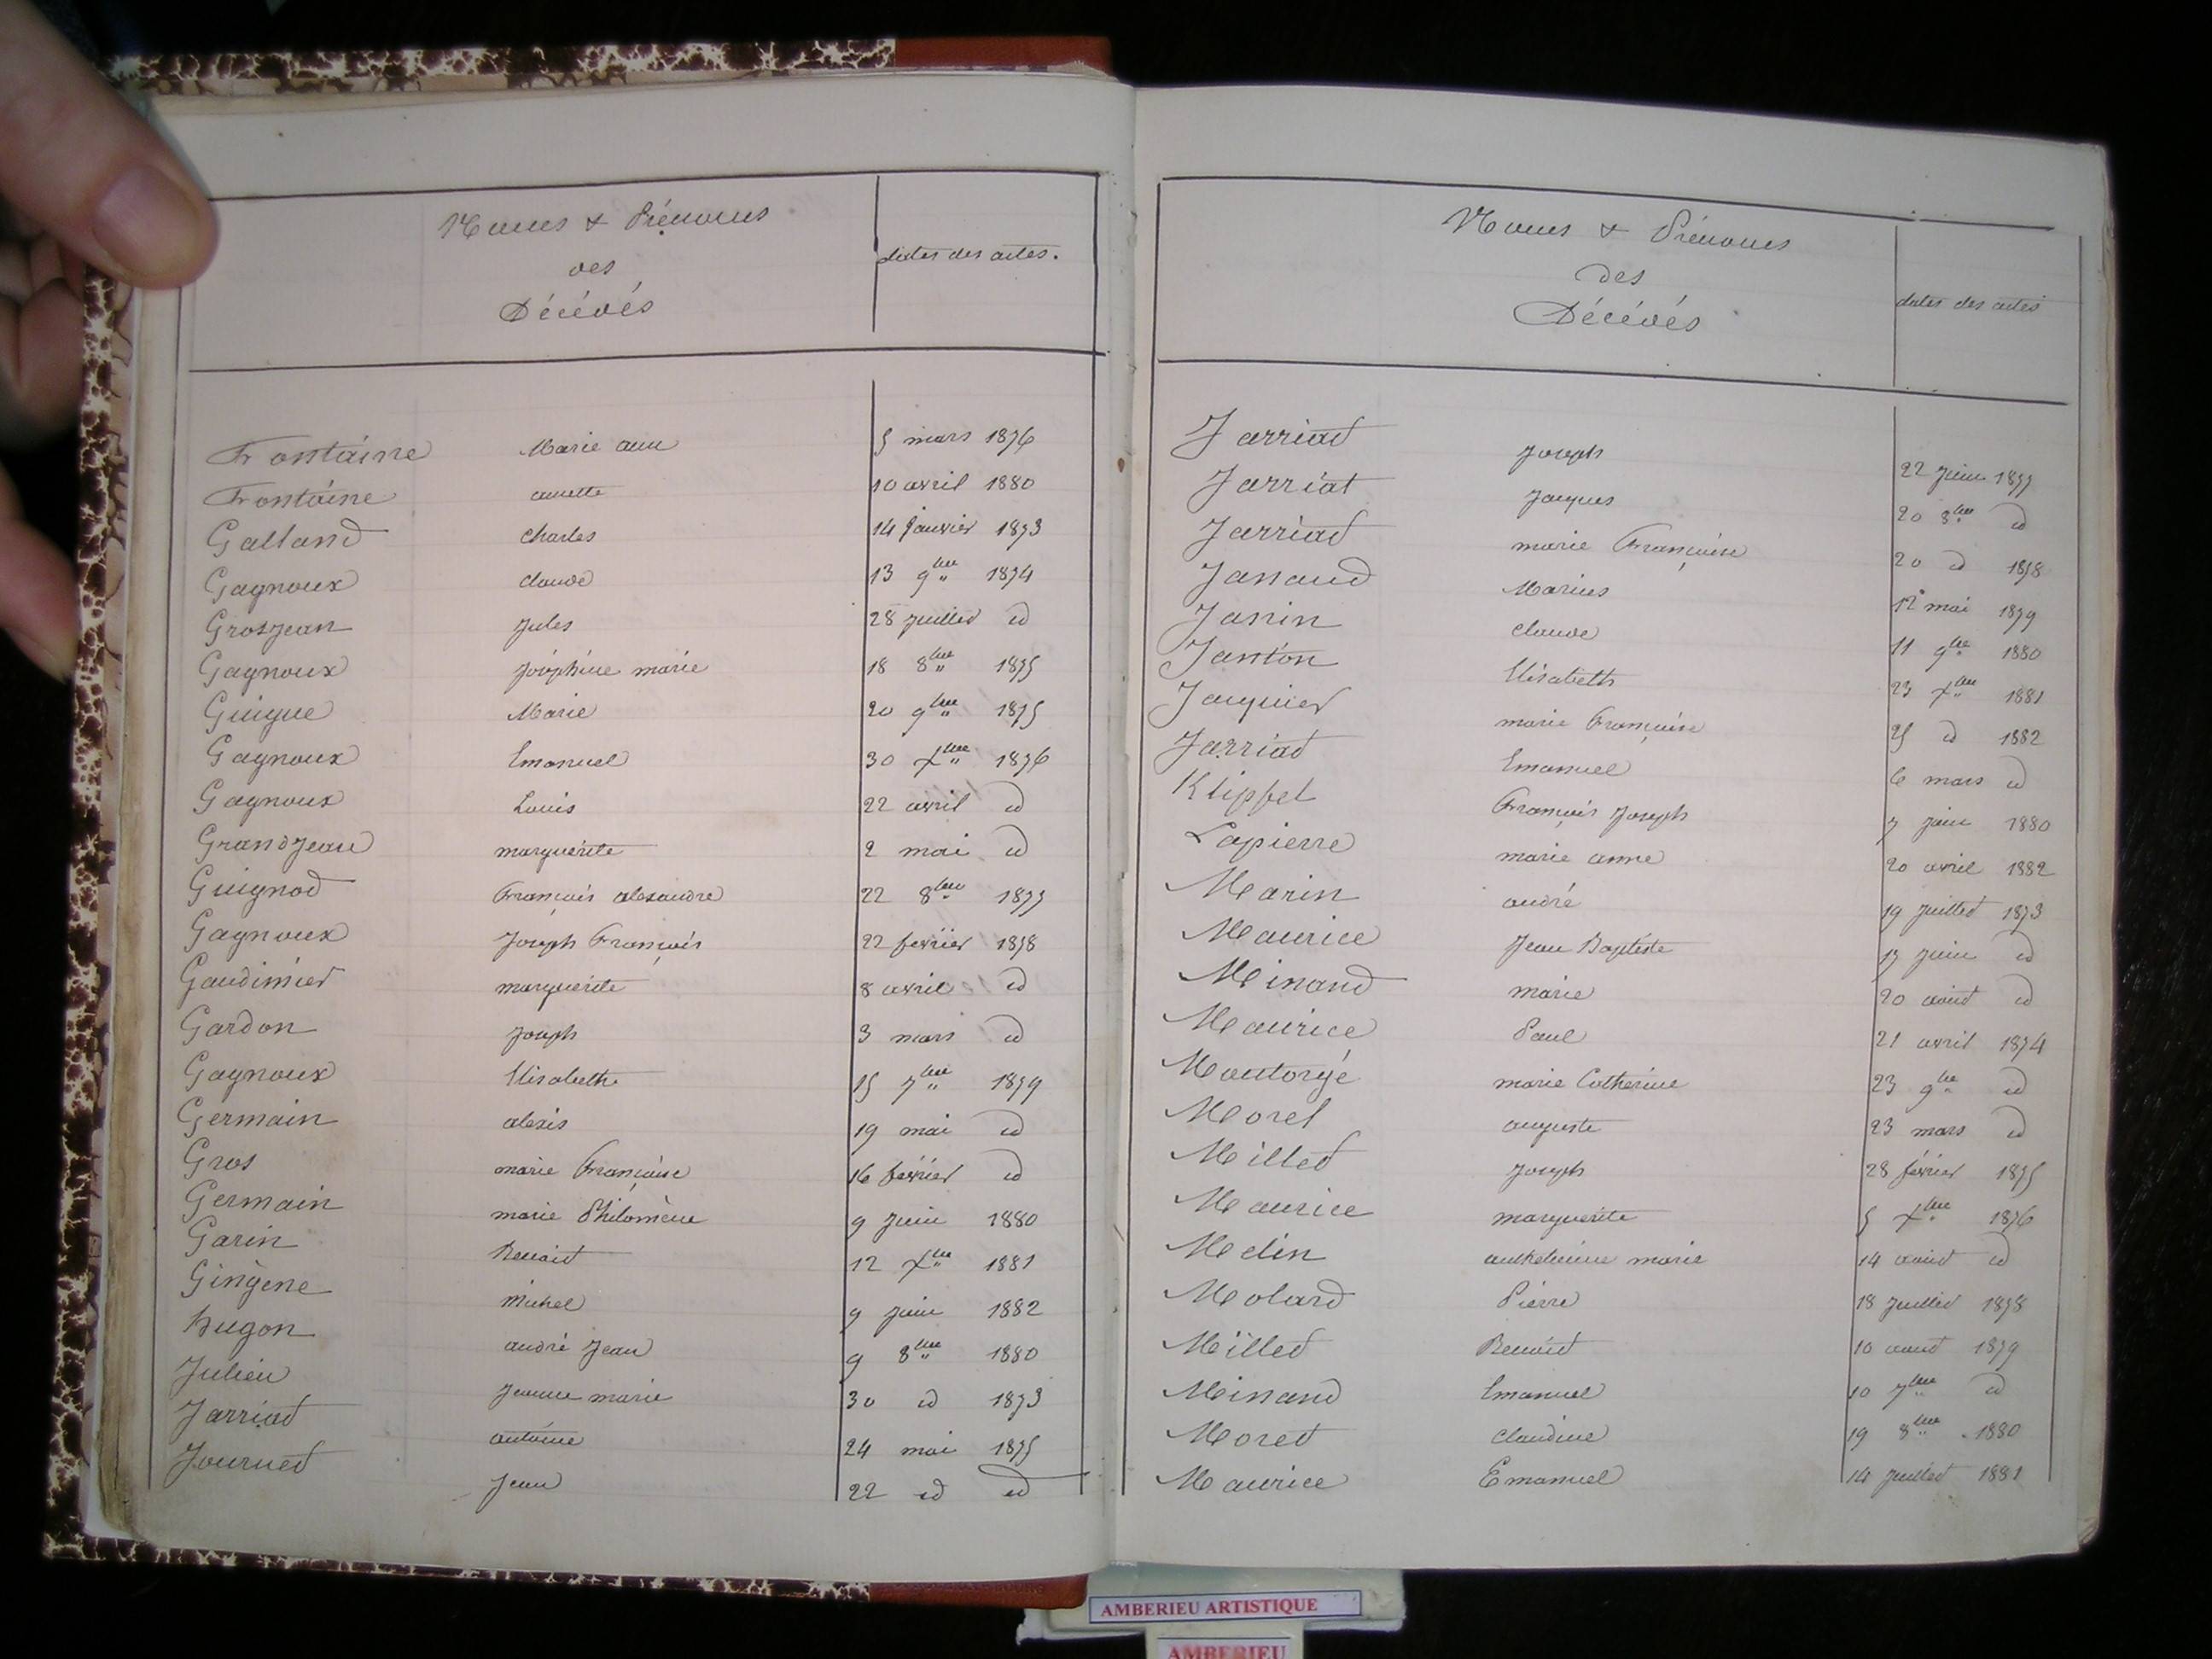 Noms & Prénoms
des
Décédés
dates des actes.
Fontaine Marie anne 5 mars 1876
Fontaine annette 10 avril 1880
Galland charles 14 Janvier 1873
Gagnoux claude 13 9bre 1874
Grosjean Jules 28 Juillet id
Gagnoux Joséphine marie 18 8bre 1875
Guigue Marie 20 9bre 1875
Gagnoux Emanuel 30 xbre 1876
Gagnoux Louis 22 avril id
Grandjean marguerite 2 mai id
Guignod François alexandre 22 8bre 1877
Gagnoux Joseph François 22 février 1878
Gaudimier marguerite 8 avril id
Gardon Joseph 3 mars id
Gagnoux Elisabeth 15 7bre 1879
Germain alexis 19 mai id
Gros marie Françoise 16 février id
Germain marie Philomène 9 Juin 1880
Garin Benoit 12 xbre 1881
Gingène Michel 9 Juin 1882
hugon andré Jean 9 8bre 1880
Julien Jeanne marie 30 id 1873
Jarriat antoine 24 mai 1875
Journet Jean 22 id id
Noms & Prénoms
des
Décédés
dates des actes
Jarriat Joseph 22 Juin 1877
Jarriat Jacques 20 8bre id
Jarriat marie Françoise 20 id 1878
Janaud Marius 12 mai 1879
Janin claude 11 9bre 1880
Janton Elisabeth 23 xbre 1881
Jacquier marie Françoise 25 id 1882
Jarriat Emanuel 6 mars id
Klipfel François Joseph 7 juin 1880
Lapierre marie anne 20 avril 1882
Marin andré 19 Juillet 1873
Maurice Jean Baptiste 17 juin id
Minand marie 20 août id
Maurice Paul 21 avril 1874
Montorgé marie Catherine 23 9bre id
Morel auguste 23 mars id
Millet Joseph 28 février 1875
Maurice marguerite 5 xbre 1876
Melin anthelmine marie 14 août id
Molard Pierre 18 Juillet 1878
Millet Benoit 10 août 1879
Minand Emanuel 10 7bre id
Moret claudine 19 8bre 1880
Maurice Emanuel 14 Juillet 1881
AMBERIEU ARTISTIQUE
AMBERIEU